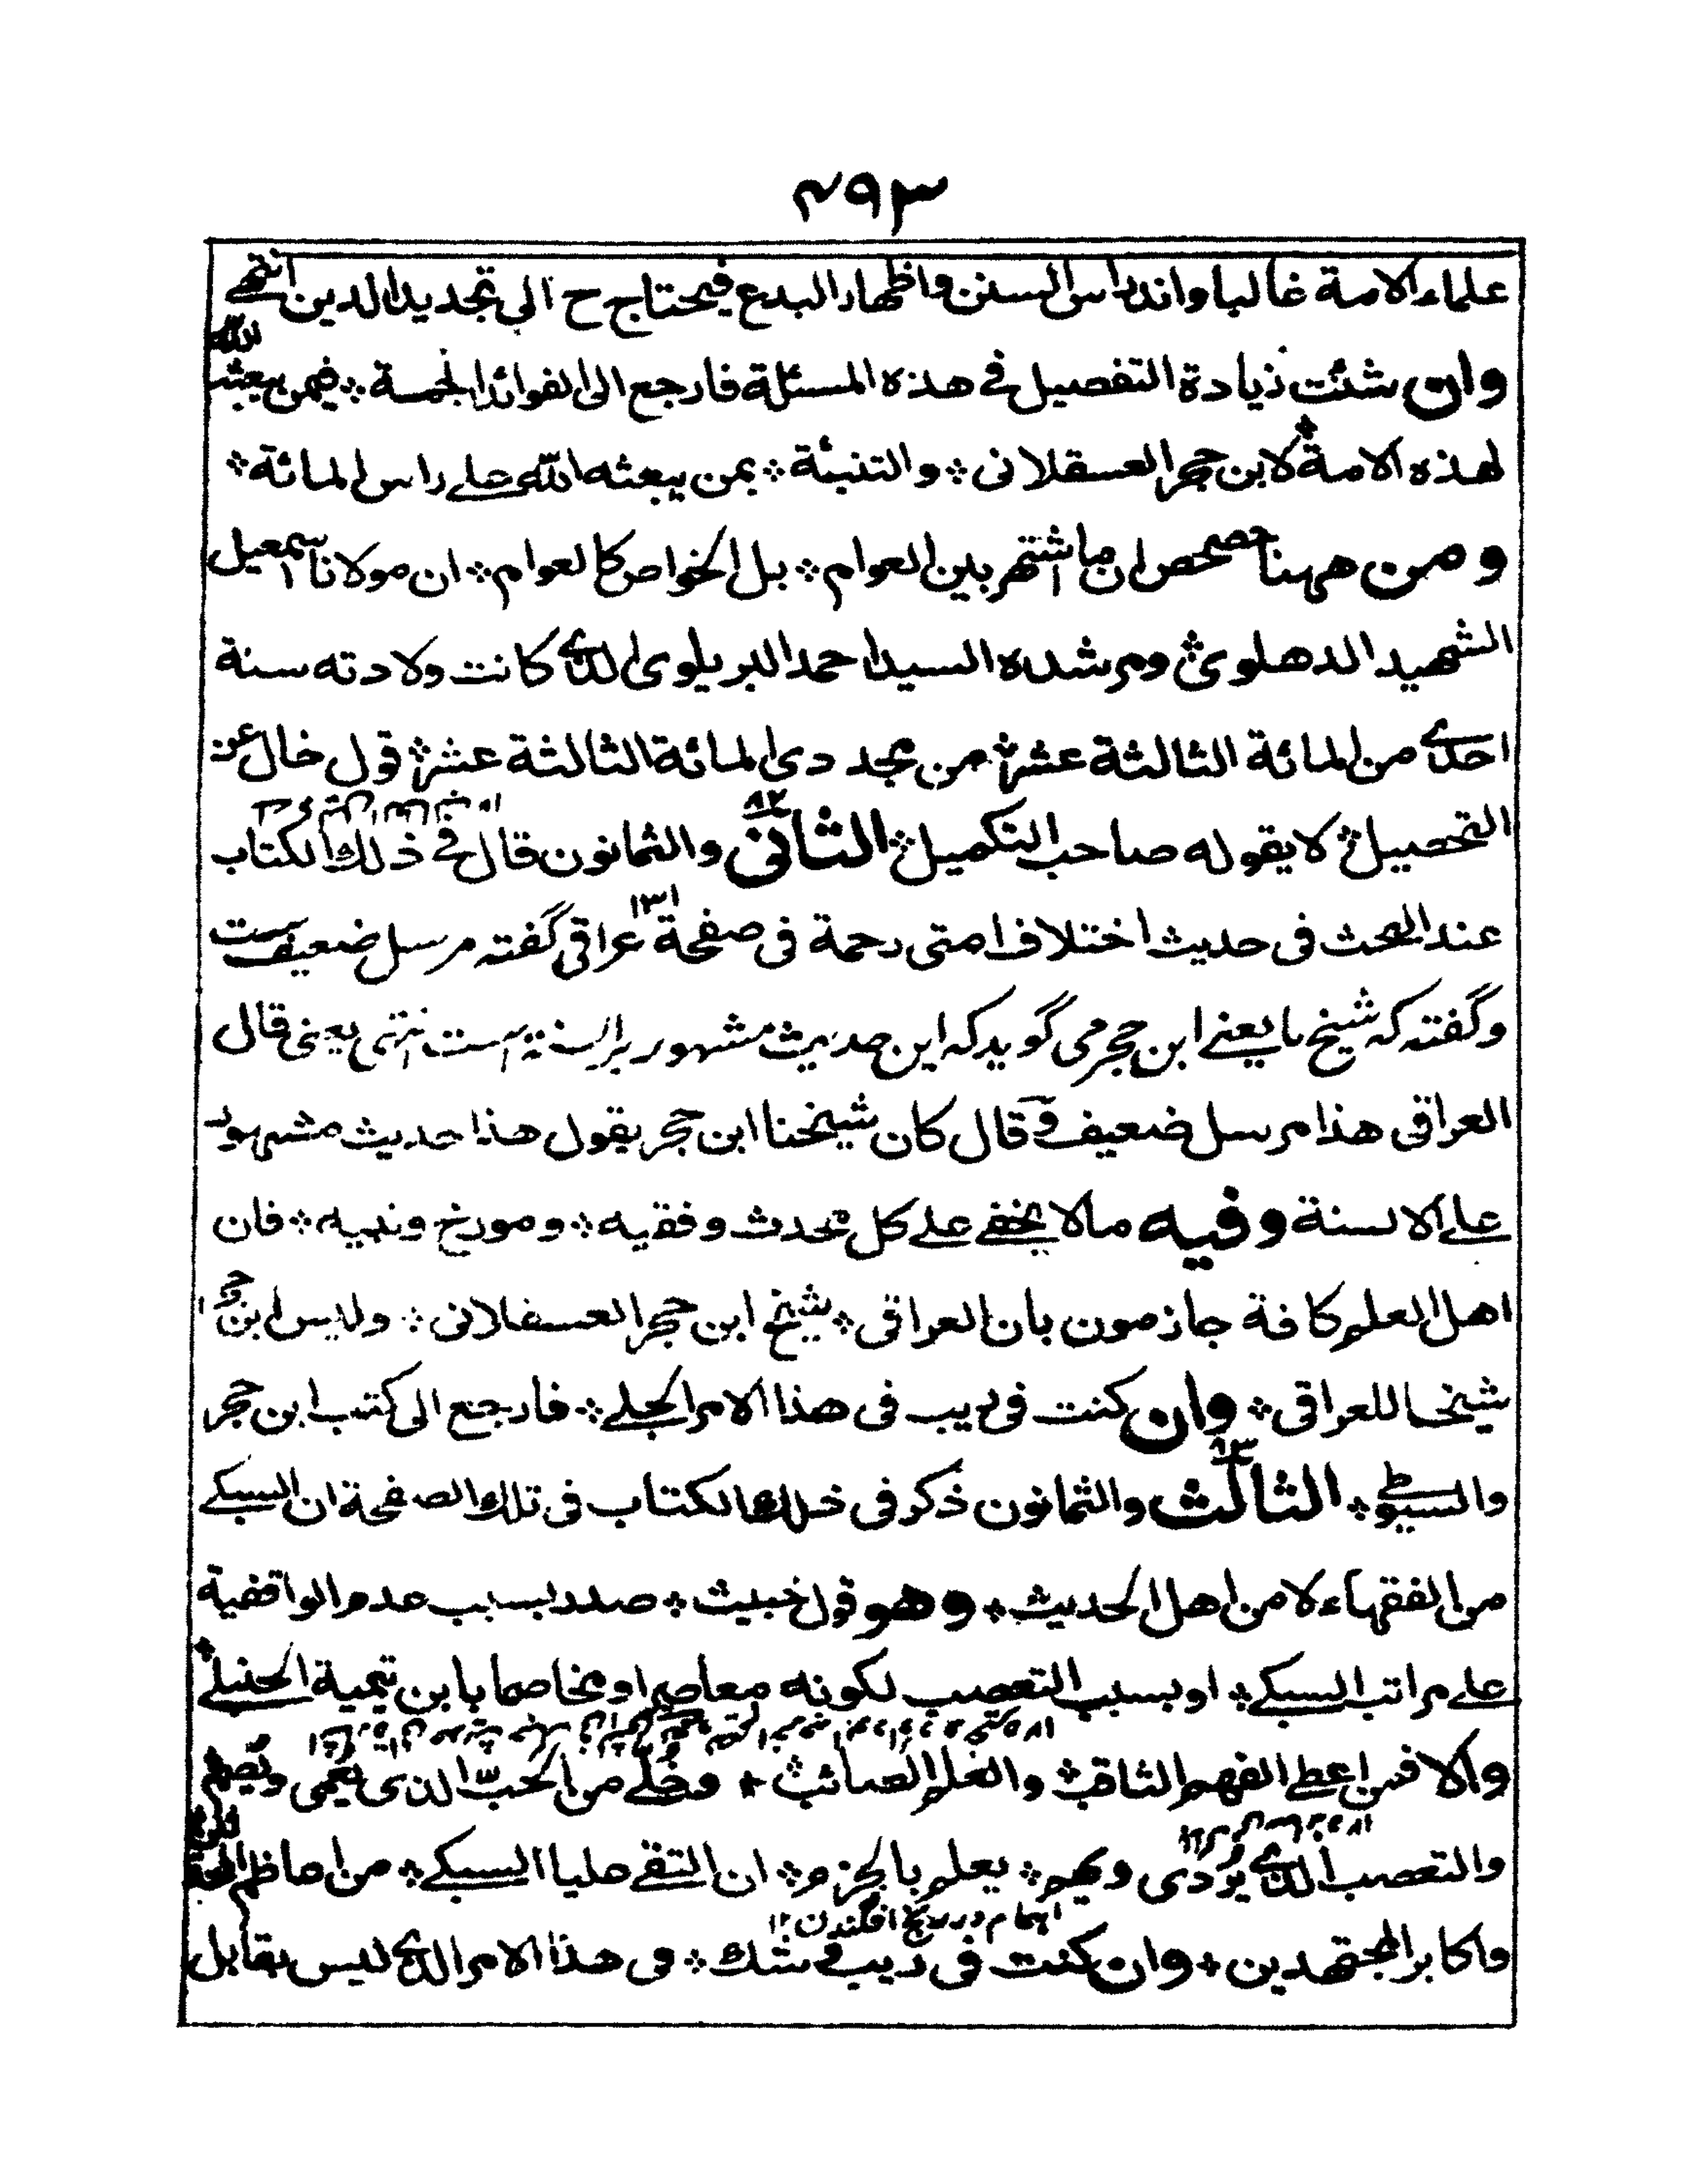 ۴۹۳
علماء الامة غالبا واندراس السنن واظهار البدع فيحتاج ح الى تجديد الدين انتهى
وان شئت زيادة التفصيل فى هذه المسئلة فارجع الى الفوائد الجمسة ؞ فيمن يبعثه الله
لهذه الامة ؞ لابن حجر العسقلانى ؞ والتنبئة ؞ بمن يبعثه الله على راس المائة ؞
ومن ههنا حصحص ان ما اشتهر بين العوام ؞ بل الخواص كالعوام ؞ ان مولانا اسمعيل
الشهيد الدهلوى ؞ ومرشده السيد احمد البريلوى الذى كانت ولادته سنة
احدى من المائة الثالثة عشر ؞ من مجددى المائة الثالثة عشر ؞ قول خال عن
التحصيل ؞ لا يقوله صاحب التكميل ؞ الثانى ۸۲ والثمانون قال فى ذلك الكتاب
عند البحث فى حديث اختلاف امتى رحمة فى صفحة ۱۳۱ عراقى گفته مرسل ضعيف ست
وگفته كه شيخ ما يعنے ابن حجر مى گويد كه اين حديث مشهور بر السنة است انتهى يعنى قال
العراقى هذا مرسل ضعيف وقال كان شيخنا ابن حجر يقول هذا حديث مشهور
على الالسنة وفيه مالا يخفى على كل محدث وفقيه ؞ ومورخ ونبيه ؞ فان
اهل العلم كافة جازمون بان العراقى ؞ شيخ ابن حجر العسقلانى ؞ وليس ابن حجر
شيخا للعراقى ؞ وان كنت فى ريب فى هذا الامر الجلے ؞ فارجع الى كتب ابن حجر
والسيوطے ؞ الثالث ۸۳ والثمانون ذكر فى ذلك الكتاب فى تلك الصفحة ان السبكے
من الفقهاء لا من اهل الحديث ؞ وهو قول خبيث ؞ صدر بسبب عدم الواقفية
على مراتب السبكے ؞ او بسبب التعصب لكونه معاصرا ومخاصما بابن تيمية الحنبلے ؞
والا فمن اعطى الفهم الثاقب ؞ والعلم الصائب ؞ وخُلّى من الحُبّ الذى يُعمى ويُصم ؞
والتعصب الذى يُردى ويهم ؞ يعلم بالجزم ؞ ان التقى عليا السبكے ؞ من اعاظم الحفاظ
ايهام در رنج افگندن ۱۲
واكابر المجتهدين ؞ وان كنت فى ريب وشك ؞ فى هذا الامر الذى ليس بقابل